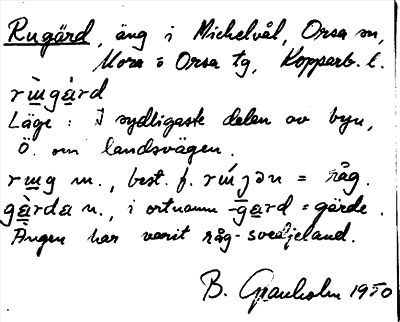 Rugärd, äng i Michelvål, Orsa sn,
Mora o Orsa tg, Kopparb. l.
rɯ̀gàrd
Läge: I sydligaste delen av byn,
Ö. om landsvägen.
rɯg m., best. f. rɯ́ɟən = råg.
gàrda n., i ortnamn -gard = gärde.
Ängen har varit råg-svedjeland.
B. Granholm 1950